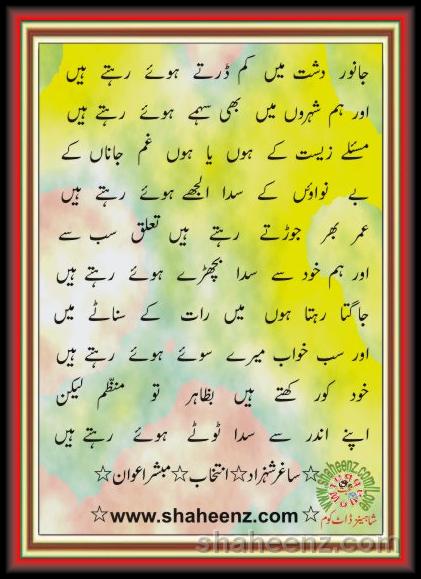 جانور دشت میں کم ڈرتے ہوئے رہتے ہیں
اور ہم شہروں میں بھی سہمے ہوئے رہتے ہیں
مسئلے زیست کے ہوں یا ہوں غم جاناں کے
بے نواؤں کے سدا الجھے ہوئے رہتے ہیں
عمر بھر جوڑتے رہتے ہیں تعلق سب سے
اور ہم خود سے سدا بچھڑے ہوئے رہتے ہیں
جاگتا رہتا ہوں میں رات کے سناٹے میں
اور سب خواب میرے سوئے ہوئے رہتے ہیں
خود کور کھتے ہیں بظاہر تو منظّم لیکن
اپنے اندر سے سدا ٹوٹے ہوئے رہتے ہیں
☆ساغر شہزاد☆انتخاب☆مبشراعوان☆
☆www.shaheenz.com☆
www.shaheenz.com
شاہینز ڈاٹ کوم
shaheenz.com